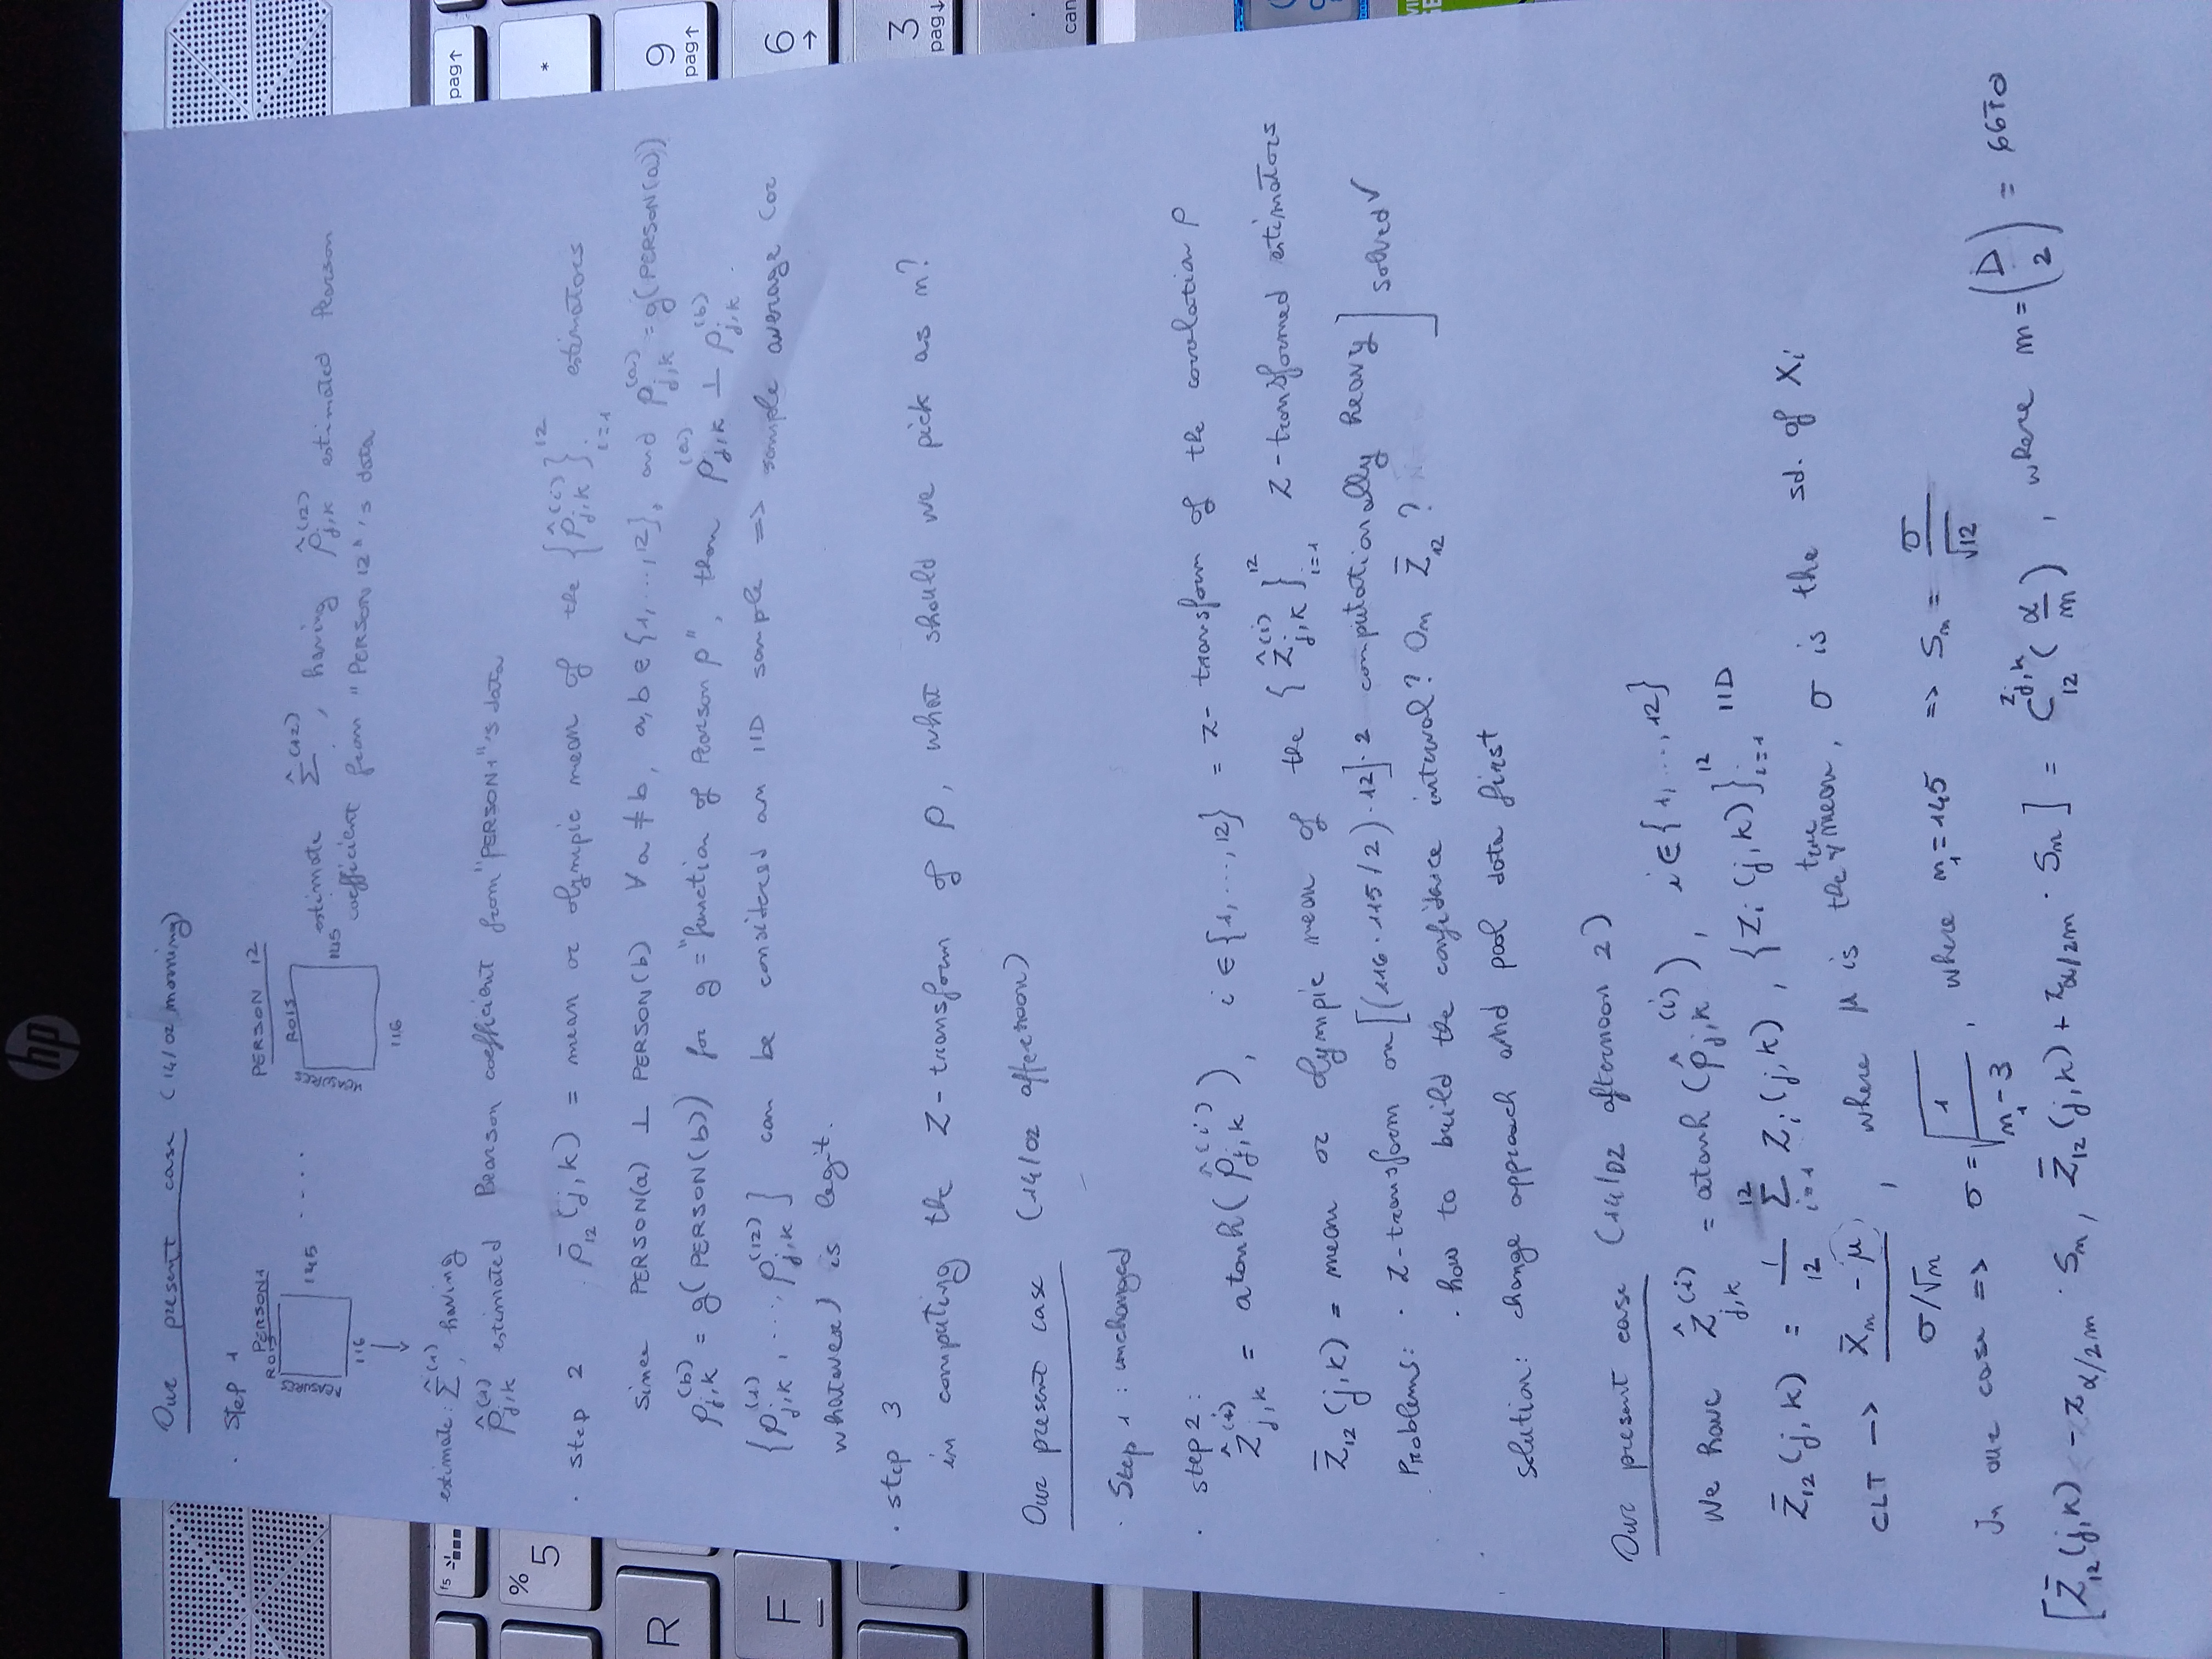 hp
Our present case (14/02 morning)
· Step 1
PERSON1
ROIS
MEASURES
145
116
. . . .
PERSON 12
ROIS
MEASURES
145
116
estimate Σ̂^(12), having ρ̂_{j,k}^(12) estimated Pearson
coefficient from "PERSON 12"'s data
estimate: Σ̂^(1), having
ρ̂_{j,k}^(1) estimated Pearson coefficient from "PERSON1"'s data
· step 2 ρ̄_12(j,k) = mean or olympic mean of the {ρ̂_{j,k}^(i)}_{i=1}^{12} estimators
since PERSON(a) ⊥ PERSON(b) ∀ a ≠ b, a,b ∈ {1, ..., 12}, and ρ_{j,k}^(a) = g(PERSON(a))
ρ_{j,k}^(b) = g(PERSON(b)) for g = "function of Pearson ρ", then ρ_{j,k}^(a) ⊥ ρ_{j,k}^(b).
{ρ_{j,k}^(1), ..., ρ_{j,k}^(12)} can be considered an IID sample => sample average (or
whatever) is legit.
· step 3
in computing the Z-transform of ρ, what should we pick as n?
Our present case (14/02 afternoon)
· Step 1 : unchanged
· step 2 :
Ẑ_{j,k}^(i) = atanh(ρ̂_{j,k}^(i)), i ∈ {1, ..., 12} = Z-transform of the correlation ρ
Z̄_12(j,k) = mean or olympic mean of the {Ẑ_{j,k}^(i)}_{i=1}^{12} Z-transformed estimators
Problems: · Z-transform on [(116·115/2)·12]·2 computationally heavy
· how to build the confidence interval? On Z̄_12 ?
] solved ✓
solution: change approach and pool data first
Our present case (14/02 afternoon 2)
We have Ẑ_{j,k}^(i) = atanh(ρ̂_{j,k}^(i)), i ∈ {1, ..., 12}
Z̄_12(j,k) = 1/12 Σ_{i=1}^{12} Z_i(j,k), {Z_i(j,k)}_{i=1}^{12} IID
CLT -> (X̄_n - μ)/(σ/√n), where μ is the true mean, σ is the sd. of X_i
In our case => σ = √(1/(n_1-3)), where n_1 = 145 => S_n = σ/√12
[Z̄_12(j,k) - z_{α/2m} · S_n, Z̄_12(j,k) + z_{α/2m} · S_n] = C_12^{Z_{j,k}}(α/m), where m = (D 2) = 6670
f5
%
5
R
F
pag↑
*
9
pag↑
6
→
3
pag↓
.
can